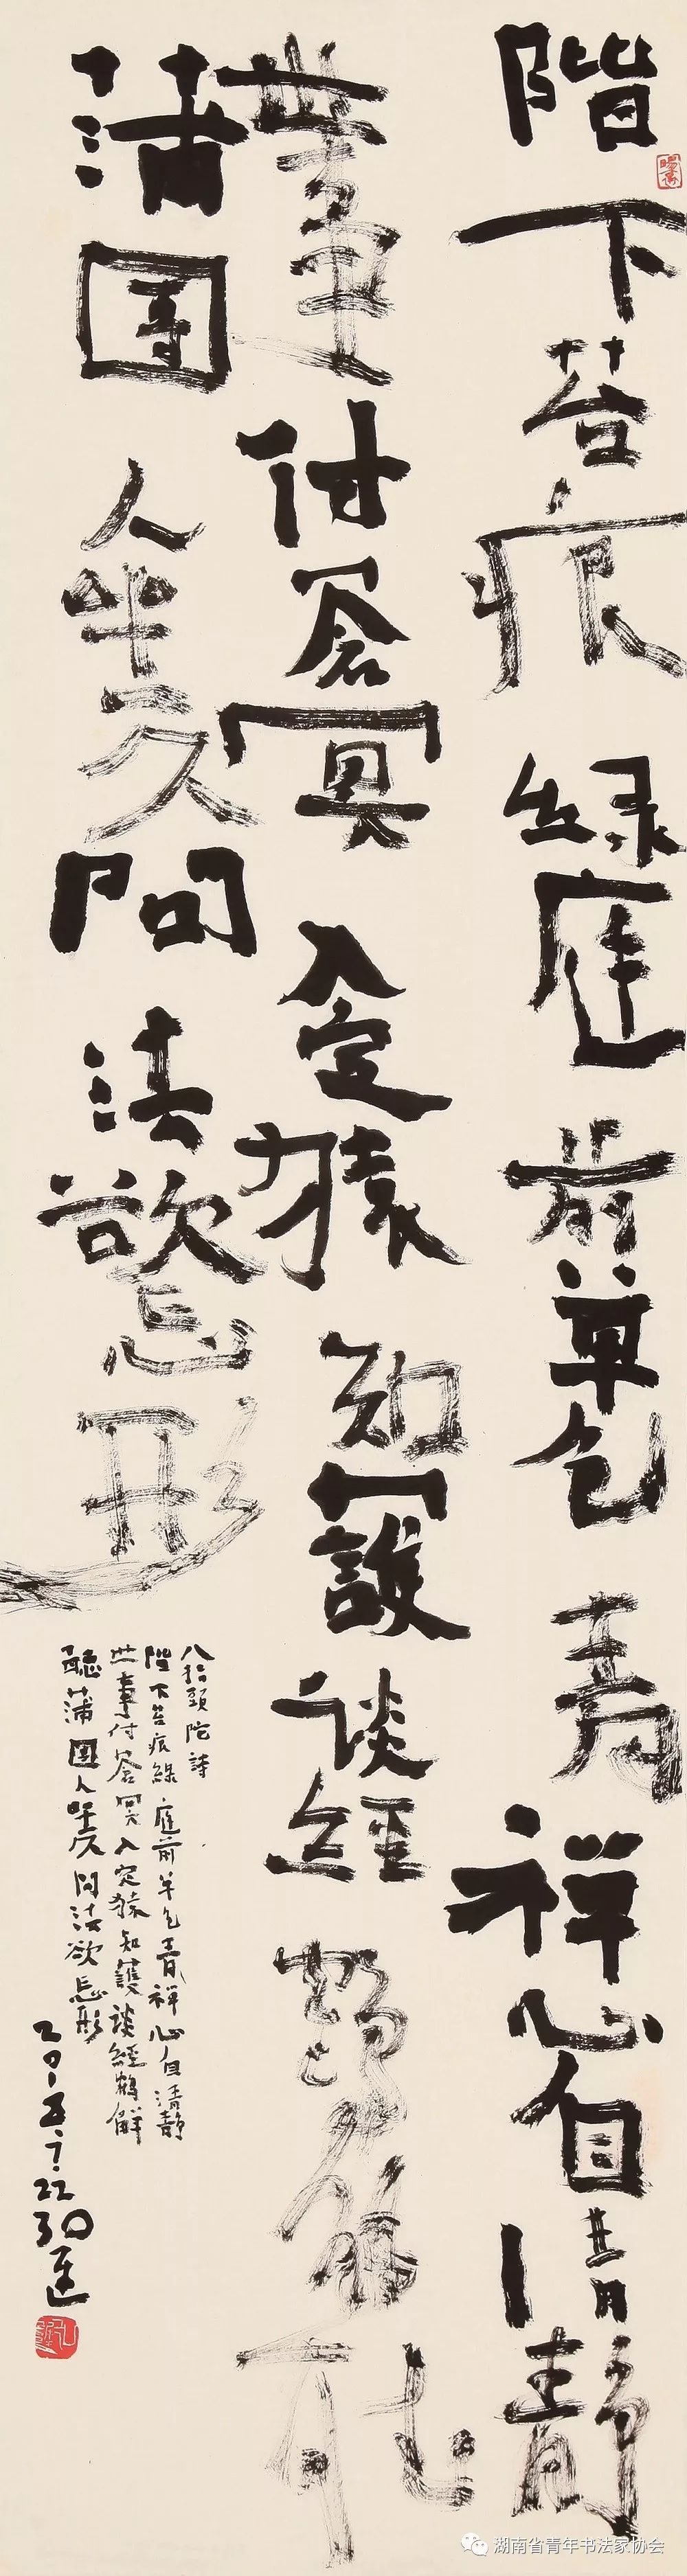 階下苔痕綠庭前草色青禪心自清靜
世事付蒼冥入定猿知護談經鶴解聽
蒲團人坐久問法欲忘形
八指頭陀詩
階下苔痕綠庭前草色青禪心自清靜
世事付蒼冥入定猿知護談經鶴解
聽蒲團人坐久問法欲忘形
湖南省青年书法家协会